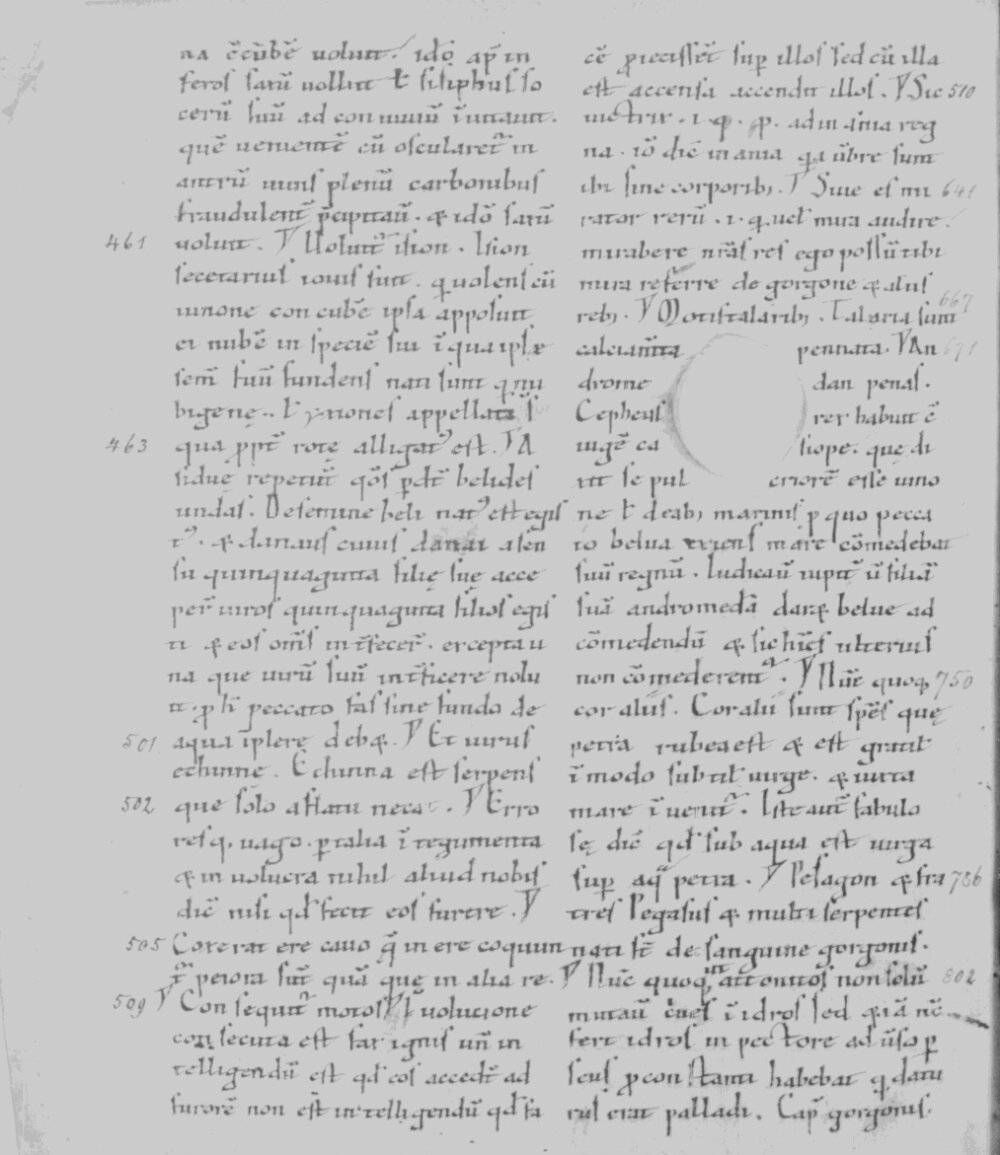 na c̄cūbē uoluit. idō ap̄ in
feros saxū uoluit ł sisiphus so
cerū suū ad conuiuiū īuitauit.
quē uenientē cū oscularet᷑ in
antrū uiuis plenū carbonibus
fraudulent᷑ p̄cipitau̅. & idō saxū
461 uoluit. Ỿ Uoluit᷑ ision. Ision
secetarius iouis fuit. q uolens cū
iunone concubē ipsa apposuit
ei nubē in speciē sui ī qua ipse
semē suū fundens nati sunt q nu
bigenę. ł yxiones appellati s̄
463 qua ꝓpt̄ rotę alligat᷑ est. Ỿ A
sidue repetūt q̄s ꝑdt̄ belides
undas. De semine beli nat᷑ est egis
t᷑. & danaus cuius danai a sen
su quinquaginta filię suę acce
per̄ uiros quinquaginta filios egis
ti & eos om̄s int̄fecer̄. excepta u
na que uirū suū int̄ficere nolu
it. ꝓ h̄ peccato fas sine fundo de
501 aqua īplere deb&. Ỿ Et uirus
echinne. Echinna est serpens
502 que solo afflatu necat. Ỿ Erro
resq, uago. ꝑ talia ītegumenta
& inuolucra nihil aliud nobis
dic̄ nisi qđ fecit eos furere. Ỿ
505 Coxerat ere cauo q̄ in ere coquun
t᷑ peiora sūt quā que in alia re.
509 Ỿ Consequit᷑ motos Ỿ ł uolucione
consecuta est far ignis un̄ in
telligendū est qđ eos accedt̄ ad
furorē non est intelligendū qđ fa
cē ꝓiecisset̄ suꝑ illos sed cū illa
est accensa accendit illos. Ỿ Sic 510
uictrix. i. q. ꝓ. ad inania reg
na. iō dic̄ inania q̄a ūbre sunt
ibi sine corporib;. Ỿ Siue es mi 641
rator rerū. i. q. uel mira audire.
mirabere nr̄as res ego possū tibi
mira referre de gorgone & aliis
reb;. Ỿ Motis talarib;. Talaria sunt 667
calciam̄ta pennata. Ỿ An 671
drome dan penas.
Cepheus rex habuit ē
iugē ca siope. que di
xit se pul criorē esse iuno
ne ł deab; marinis ꝓ quo pecca
to belua exiens mare cōmedebat
suū regnū. Iudicau̅ iupit̄ ū filiā
suā andromedā dar& belue ad
cōmedendū & sic hic̄s ulterius
non cōmederent᷑. Ỿ Nūc quoq, 750
coralus. Coralii sunt spēs quę
petra rubea est & est gratił
ī modo subtił uirge. & iuxta
mare īuenit᷑. Iste aut̄ fabulo
sę dic̄ qđ sub aqua est uirga
suꝑ aq̄ petra. Ỿ Pelagon & fra 786
tres Pegasus & multi serpentes
nati st̄ de sanguine gorgonis.
Ỿ Nūc quoq, ut attonitos non solū 802
mutau̅ c̄nes ī idros sed & iā nc̄
fert idros in pectore ad ūso ꝑ
seus ꝓ constanti habebat q, datu
rus erat palladi. Cap̄ gorgonis.